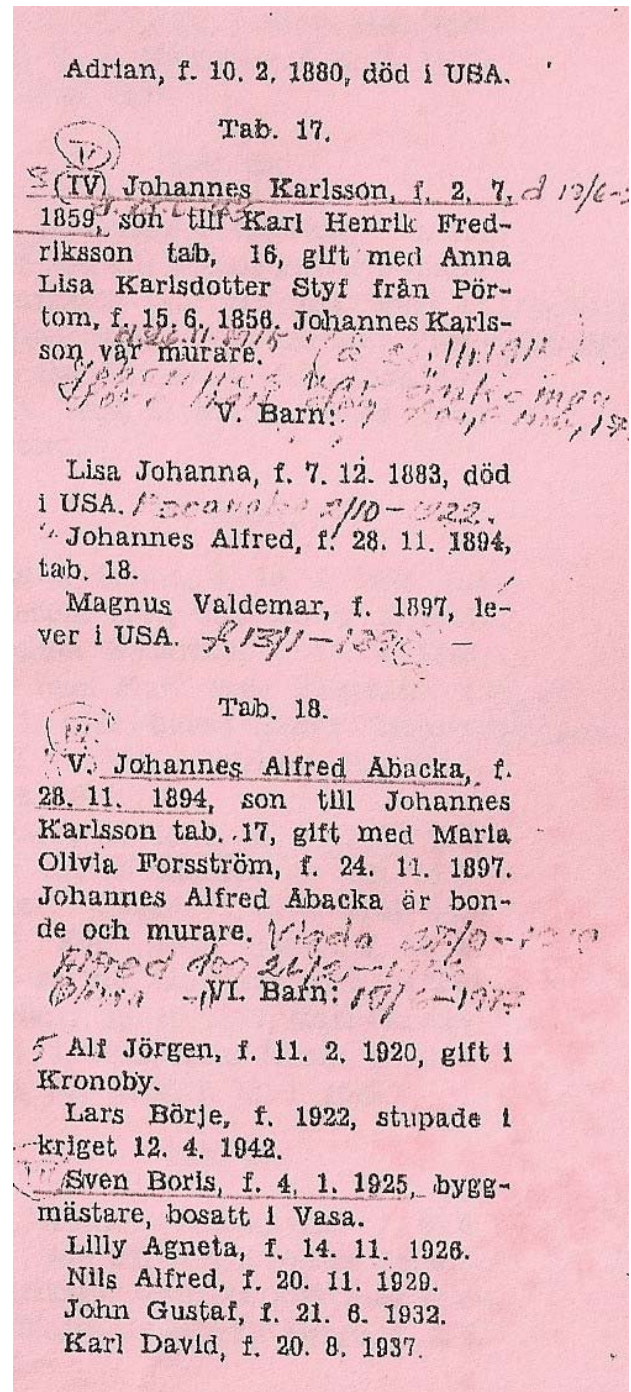 Adrian, f. 10. 2. 1880, död i USA.
Tab. 17.
(IV) Johannes Karlsson, f. 2. 7. d 13/6-
1859, son till Karl Henrik Fred-
riksson tab, 16, gift med Anna
Lisa Karlsdotter Styf från Pör-
tom, f. 15. 6. 1856. Johannes Karls-
son var murare.
V. Barn:
Lisa Johanna, f. 7. 12. 1883, död
i USA.
Johannes Alfred, f. 28. 11. 1894,
tab. 18.
Magnus Valdemar, f. 1897, le-
ver i USA. f. 13/1-
Tab. 18.
V. Johannes Alfred Åbacka, f.
28. 11. 1894, son till Johannes
Karlsson tab. 17, gift med Maria
Olivia Forsström, f. 24. 11. 1897.
Johannes Alfred Åbacka är bon-
de och murare. Vigda
Alfred dog
Olivia VI. Barn:
5 Alf Jörgen, f. 11. 2. 1920, gift i
Kronoby.
Lars Börje, f. 1922, stupade i
kriget 12. 4. 1942.
Sven Boris, f. 4. 1. 1925, bygg-
mästare, bosatt i Vasa.
Lilly Agneta, f. 14. 11. 1926.
Nils Alfred, f. 20. 11. 1929.
John Gustaf, f. 21. 6. 1932.
Karl David, f. 20. 8. 1937.